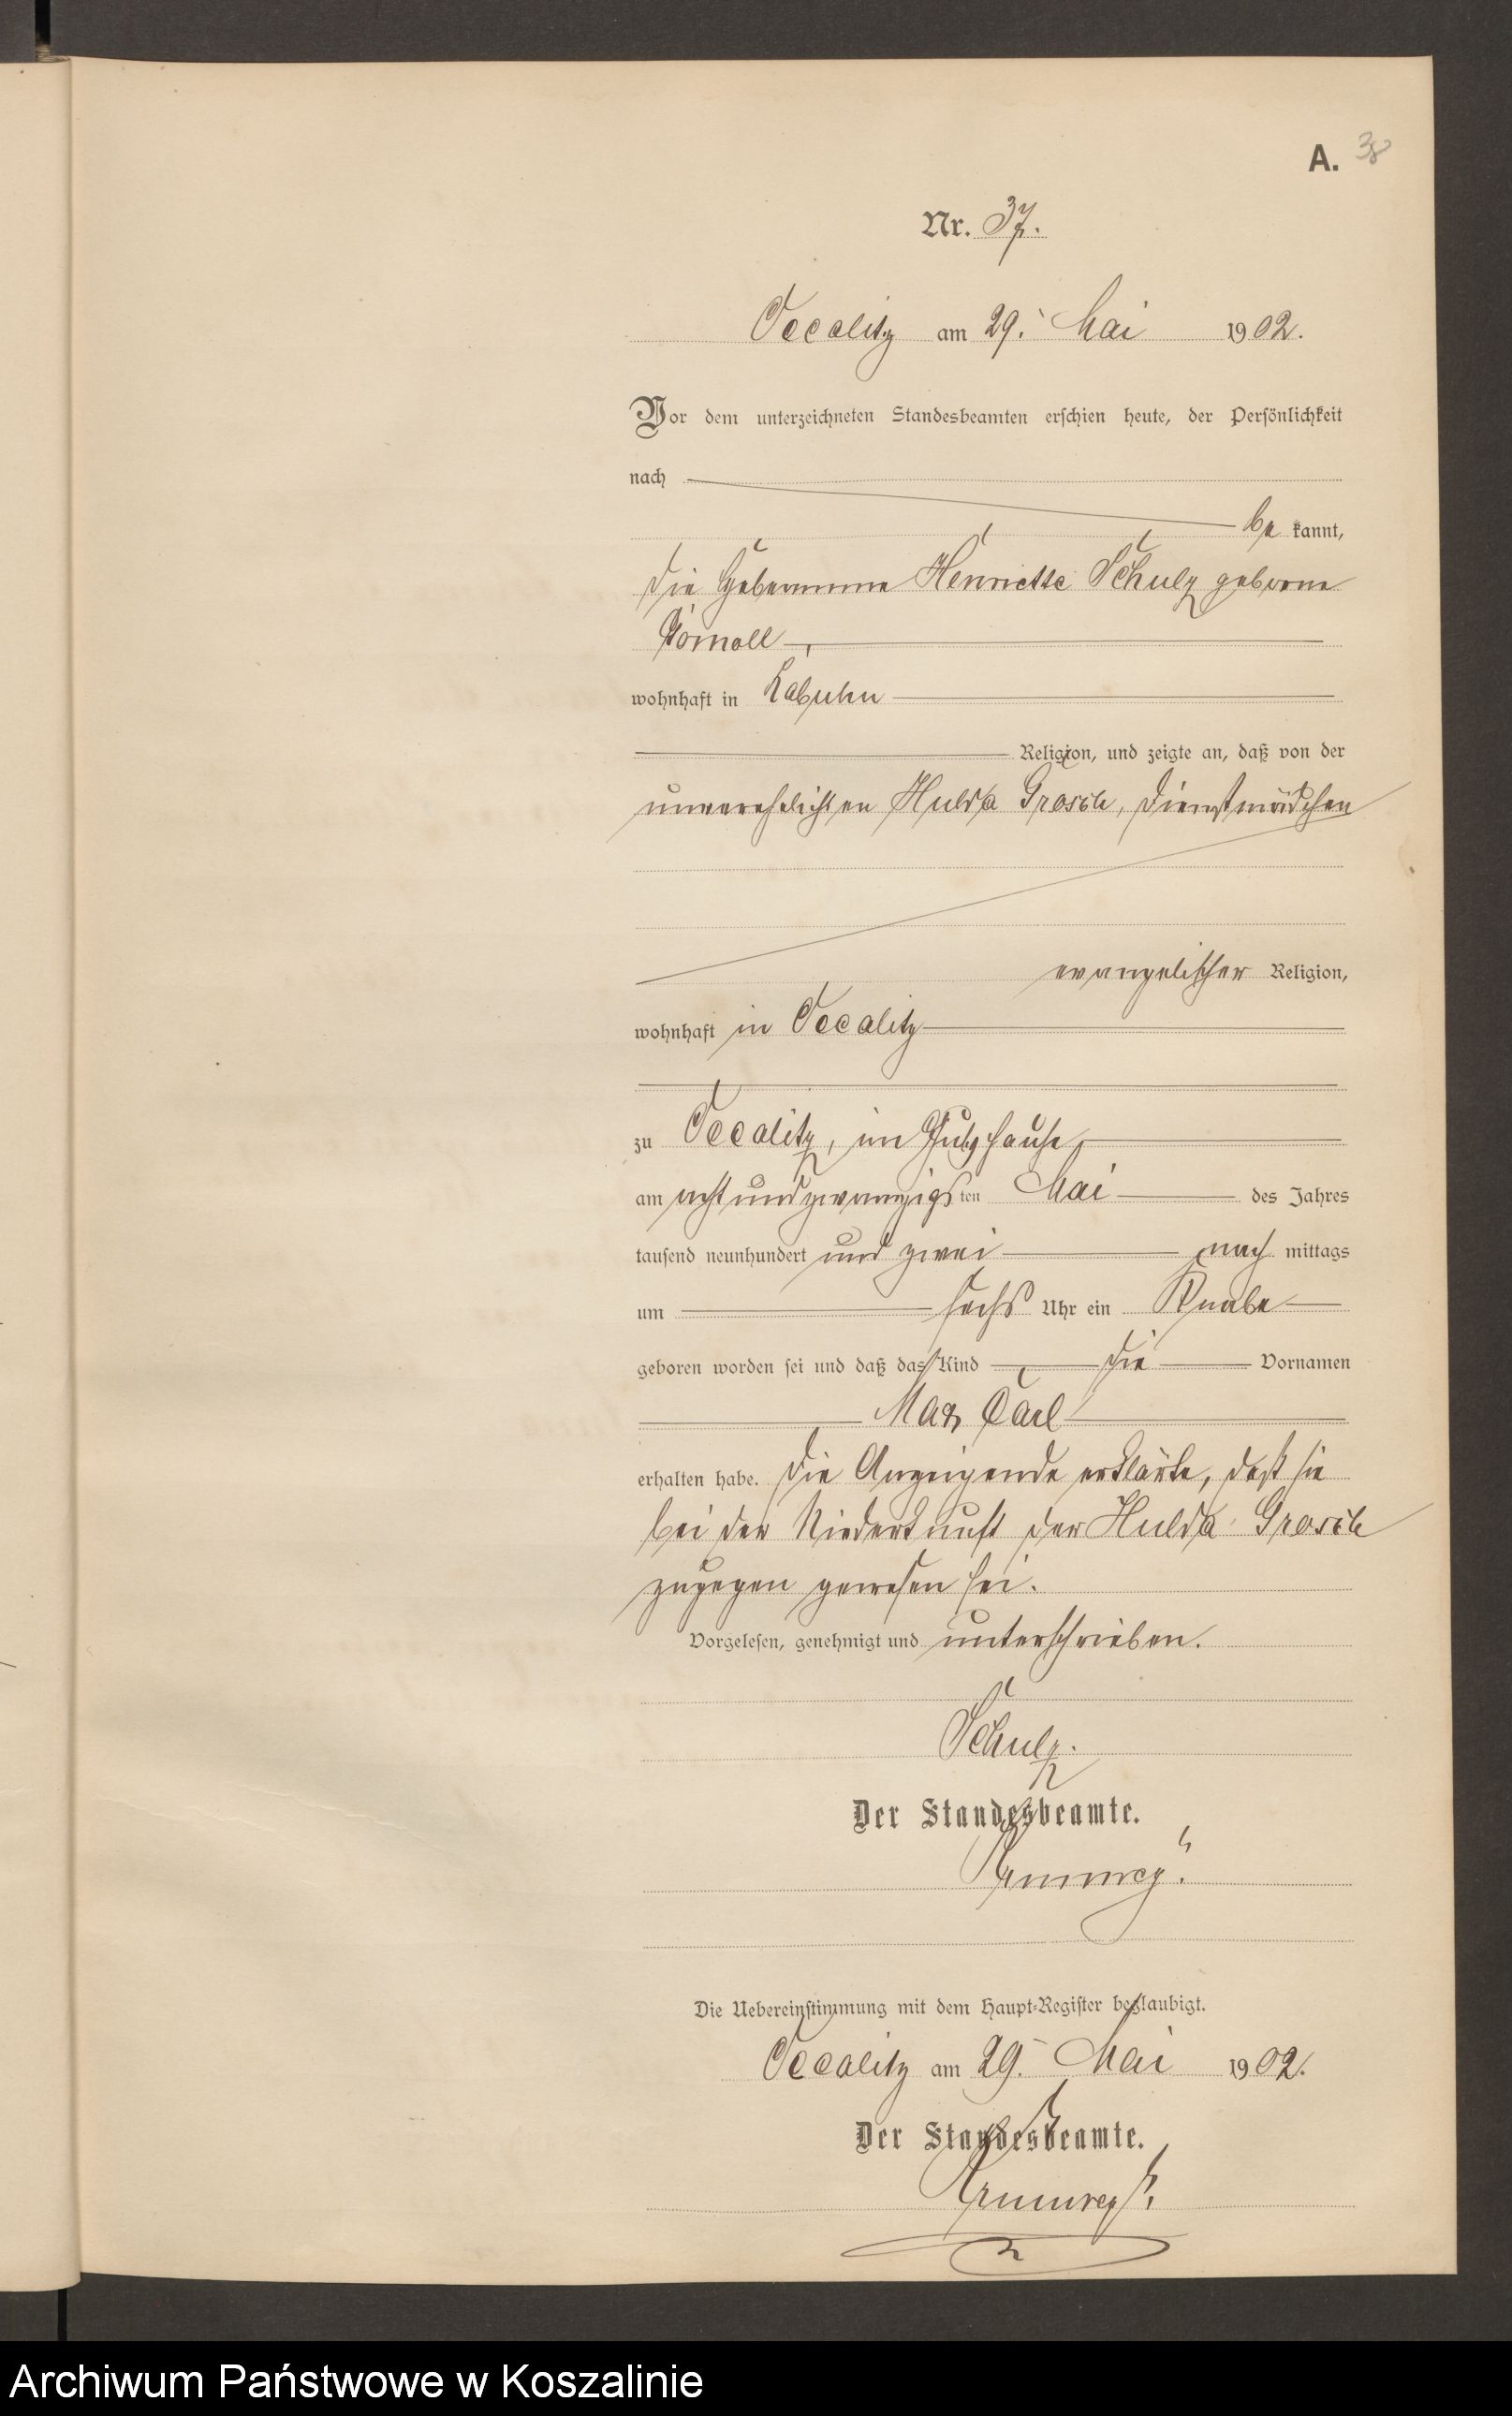 A. 38
Nr. 37.
Occalitz am 29. Mai 1902.
Vor dem unterzeichneten Standesbeamten erschien heute, der Persönlichkeit
nach
be kannt,
die Hebeamme Henriette Schulz geborene
wohnhaft in Labuhn
Religion, und zeigte an, daß von der
unverehelichten Hulda Grosch, Dienstmädchen
evangelischer Religion,
wohnhaft in Occalitz
zu Occalitz, im Gutshause,
am acht und zwanzigsten Mai des Jahres
tausend neunhundert und zwei nach mittags
um sechs Uhr ein Knabe
geboren worden sei und daß das Kind die Vornamen
Max Carl
erhalten habe. Die Anzeigende erklärte, daß sie
bei der Niederkunft der Hulda Grosch
zugegen gewesen sei.
Vorgelesen, genehmigt und unterschrieben.
Schulz.
Der Standesbeamte.
Die Uebereinstimmung mit dem Haupt-Register beglaubigt.
Occalitz am 29. Mai 1902.
Der Standesbeamte.
Archiwum Państwowe w Koszalinie